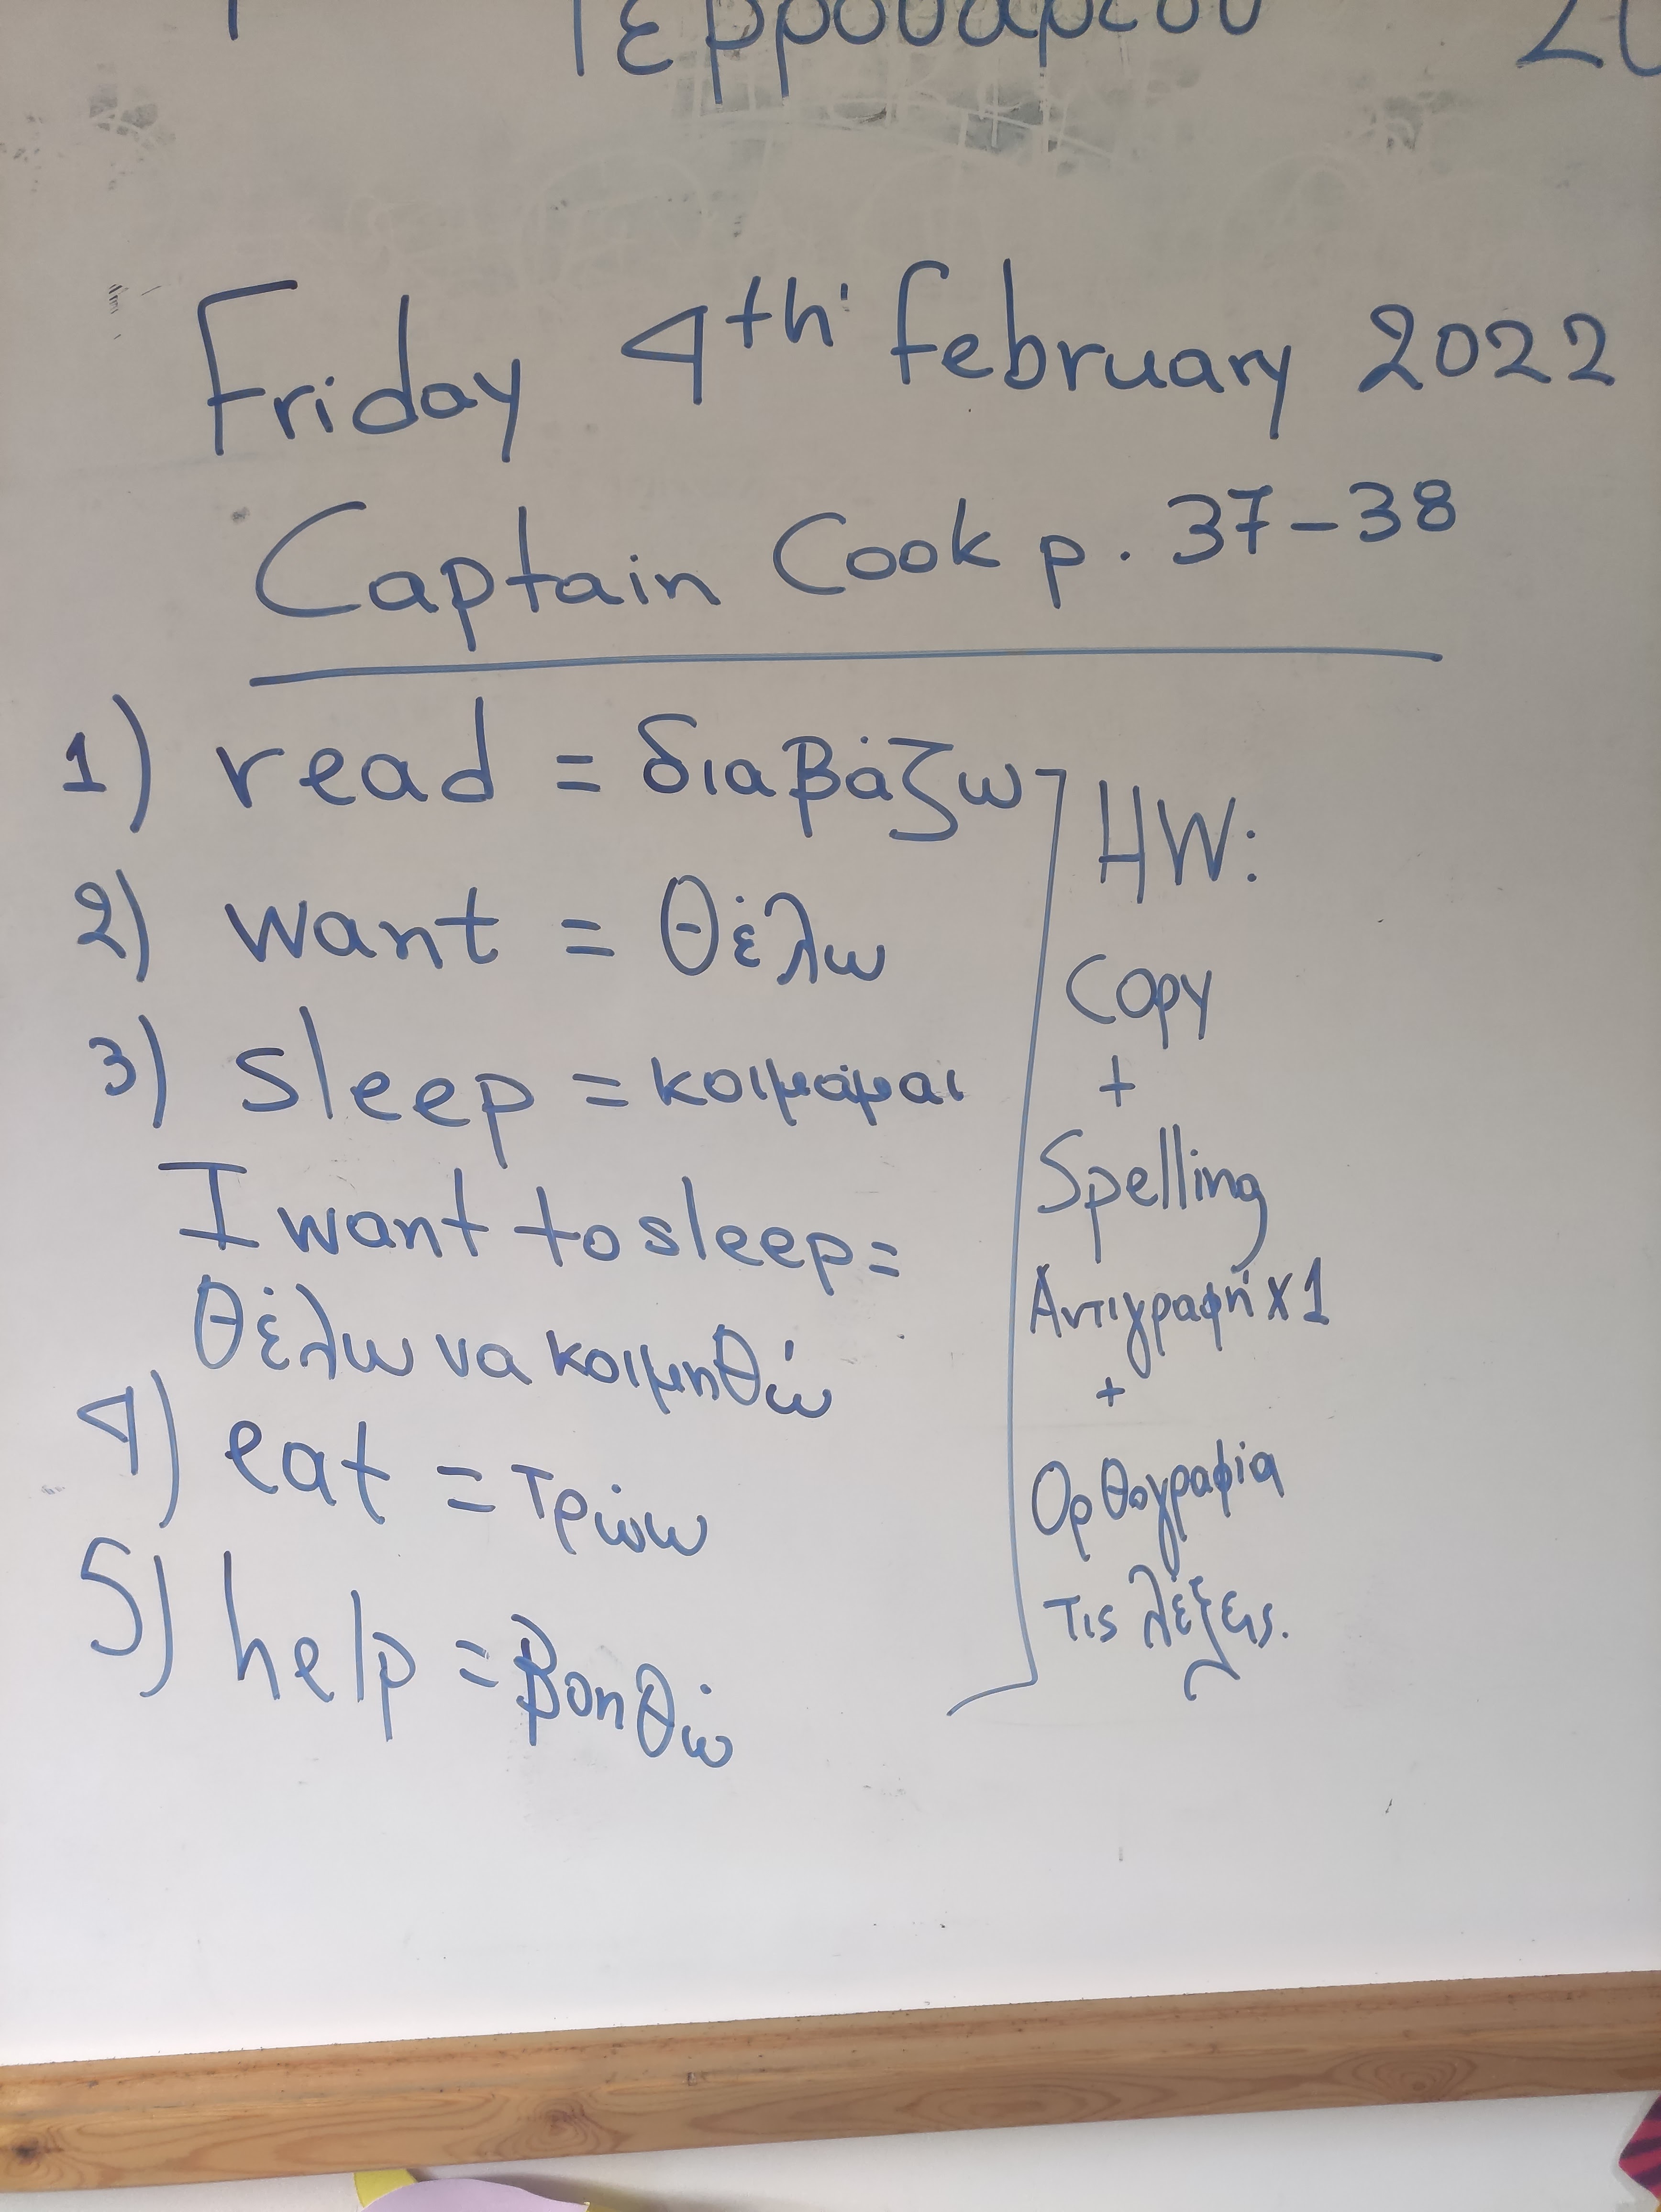 Friday 4th February 2022
Captain Cook p. 37-38
1) read = διαβάζω
2) want = θέλω
3) sleep = κοιμάμαι
I want to sleep =
θέλω να κοιμηθώ
4) eat = τρώω
5) help = βοηθώ
HW:
Copy
+
Spelling
Αντιγραφή x 1
+
Ορθογραφία
τις λέξεις.